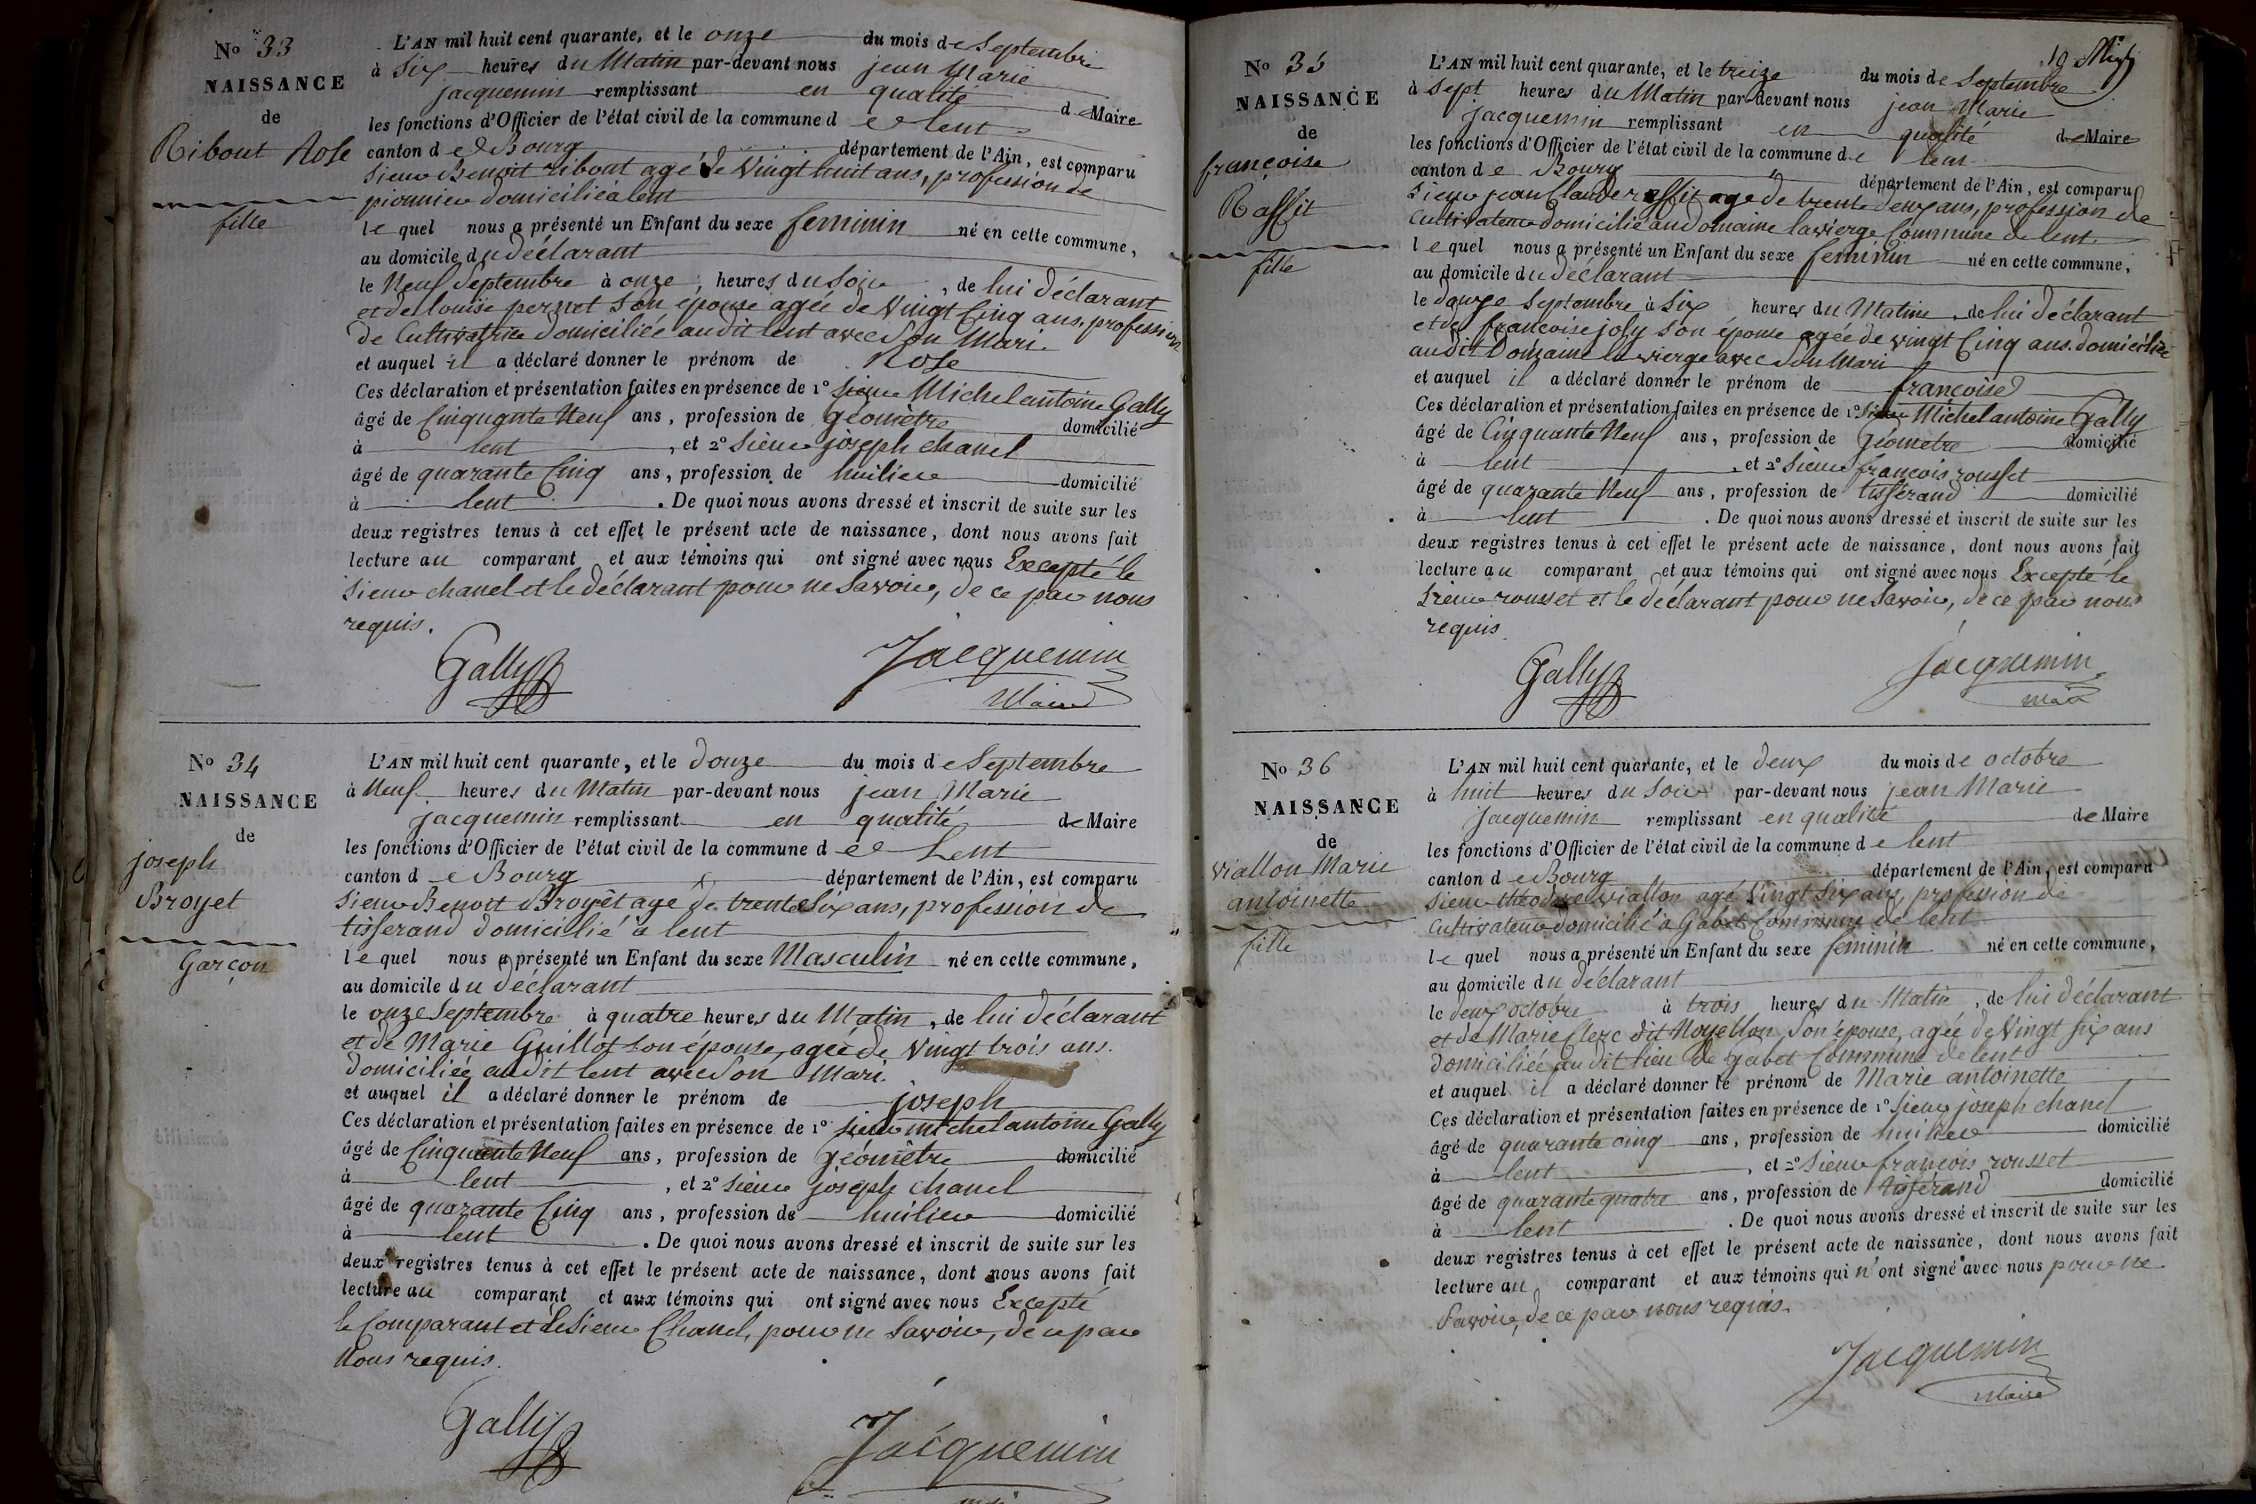 No 33
NAISSANCE
de
Ribout Rose
fille
L'AN mil huit cent quarante, et le onze du mois de Septembre
à Six heures du Matin par-devant nous jean Marie
jacquemin remplissant en qualité de Maire
les fonctions d'Officier de l'état civil de la commune de lent
canton de Bourg département de l'Ain, est comparu
Sieur Benoit ribout agé de Vingt huit ans, profession de
pionnier domicilié à lent
lequel nous a présenté un Enfant du sexe feminin né en cette commune,
au domicile du déclarant
le Neuf Septembre à onze heures du Soir, de lui déclarant
et de louise pernet son épouse agée de Vingt Cinq ans, profession
de Cultivatrice domiciliée audit lent avec Son Mari.
et auquel il a déclaré donner le prénom de Rose
Ces déclaration et présentation faites en présence de 1° Sieur Michel antoine Gally
âgé de Cinquante Neuf ans, profession de géomètre domicilié
à lent, et 2° Sieur joseph chanel
âgé de quarante Cinq ans, profession de huilier domicilié
à lent. De quoi nous avons dressé et inscrit de suite sur les
deux registres tenus à cet effet le présent acte de naissance, dont nous avons fait
lecture au comparant et aux témoins qui ont signé avec nous Excepté le
Sieur chanel et le déclarant pour ne Savoir, de ce par nous
requis.
Gally
Jacquemin
Maire
No 34
NAISSANCE
de
joseph
Broyet
Garçon
L'AN mil huit cent quarante, et le douze du mois de Septembre
à Neuf heures du Matin par-devant nous jean Marie
jacquemin remplissant en qualité de Maire
les fonctions d'Officier de l'état civil de la commune de Lent
canton de Bourg département de l'Ain, est comparu
Sieur Benoit Broyet age de trente Six ans, profession de
tisserand domicilié à lent
lequel nous a présenté un Enfant du sexe Masculin né en cette commune,
au domicile du déclarant
le onze Septembre à quatre heures du Matin, de lui déclarant
et de Marie Guillot son épouse, agée de Vingt trois ans.
domiciliée audit lent avec Son Mari.
et auquel il a déclaré donner le prénom de joseph
Ces déclaration et présentation faites en présence de 1° Sieur michel antoine Gally
âgé de Cinquante Neuf ans, profession de géomètre domicilié
à lent, et 2° Sieur joseph chanel
âgé de quarante Cinq ans, profession de huilier domicilié
à lent. De quoi nous avons dressé et inscrit de suite sur les
deux registres tenus à cet effet le présent acte de naissance, dont nous avons fait
lecture au comparant et aux témoins qui ont signé avec nous Excepté
le Comparant et le Sieur Chanel, pour ne Savoir, de ce par
Nous requis.
Gally
Jacquemin
No 35
NAISSANCE
de
françoise
Raffit
fille
L'AN mil huit cent quarante, et le treize du mois de Septembre
à Sept heures du Matin par-devant nous jean Marie
jacquemin remplissant en qualité de Maire
les fonctions d'Officier de l'état civil de la commune de lent
canton de Bourg département de l'Ain, est comparu
Sieur jean Claude raffit age de trente deux ans, profession de
Cultivateur domicilié au domaine la vierge Commune de lent.
lequel nous a présenté un Enfant du sexe feminin né en cette commune,
au domicile du déclarant
le douze Septembre à Six heures du Matin, de lui déclarant
et de françoise joly son épouse agée de vingt Cinq ans. domiciliée
audit Domaine la vierge avec Son Mari
et auquel il a déclaré donner le prénom de françoise
Ces déclaration et présentation faites en présence de 1° Sieur Michel antoine Gally
âgé de Cinquante Neuf ans, profession de Géometre domicilié
à lent, et 2° Sieur françois rousset
âgé de quarante Neuf ans, profession de tisserand domicilié
à lent. De quoi nous avons dressé et inscrit de suite sur les
deux registres tenus à cet effet le présent acte de naissance, dont nous avons fait
lecture au comparant et aux témoins qui ont signé avec nous Excepté le
Sieur rousset et le déclarant pour ne Savoir, de ce par nous
requis.
Gally
Jacquemin
maire
No 36
NAISSANCE
de
Viallon Marie
antoinette
fille
L'AN mil huit cent quarante, et le deux du mois de octobre
à huit heures du Soir par-devant nous jean Marie
Jacquemin remplissant en qualité de Maire
les fonctions d'Officier de l'état civil de la commune de lent
canton de Bourg département de l'Ain, est comparu
Sieur théodore viallon agé Vingt Six ans, profession de
Cultivateur domicilié à Gabet Commune de lent
lequel nous a présenté un Enfant du sexe feminin né en cette commune,
au domicile du déclarant
le deux octobre à trois heures du Matin, de lui déclarant
et de Marie Clerc dit Noyellon, son épouse, agée de Vingt Six ans
domiciliée audit lieu de Gabet Commune de lent
et auquel il a déclaré donner le prénom de Marie antoinette
Ces déclaration et présentation faites en présence de 1° Sieur joseph chanel
âgé de quarante cinq ans, profession de huilier domicilié
à lent, et 2° Sieur françois rousset
âgé de quarante quatre ans, profession de tisserand domicilié
à lent. De quoi nous avons dressé et inscrit de suite sur les
deux registres tenus à cet effet le présent acte de naissance, dont nous avons fait
lecture au comparant et aux témoins qui n'ont signé avec nous pour ne
Savoir, de ce par nous requis.
Jacquemin
Maire